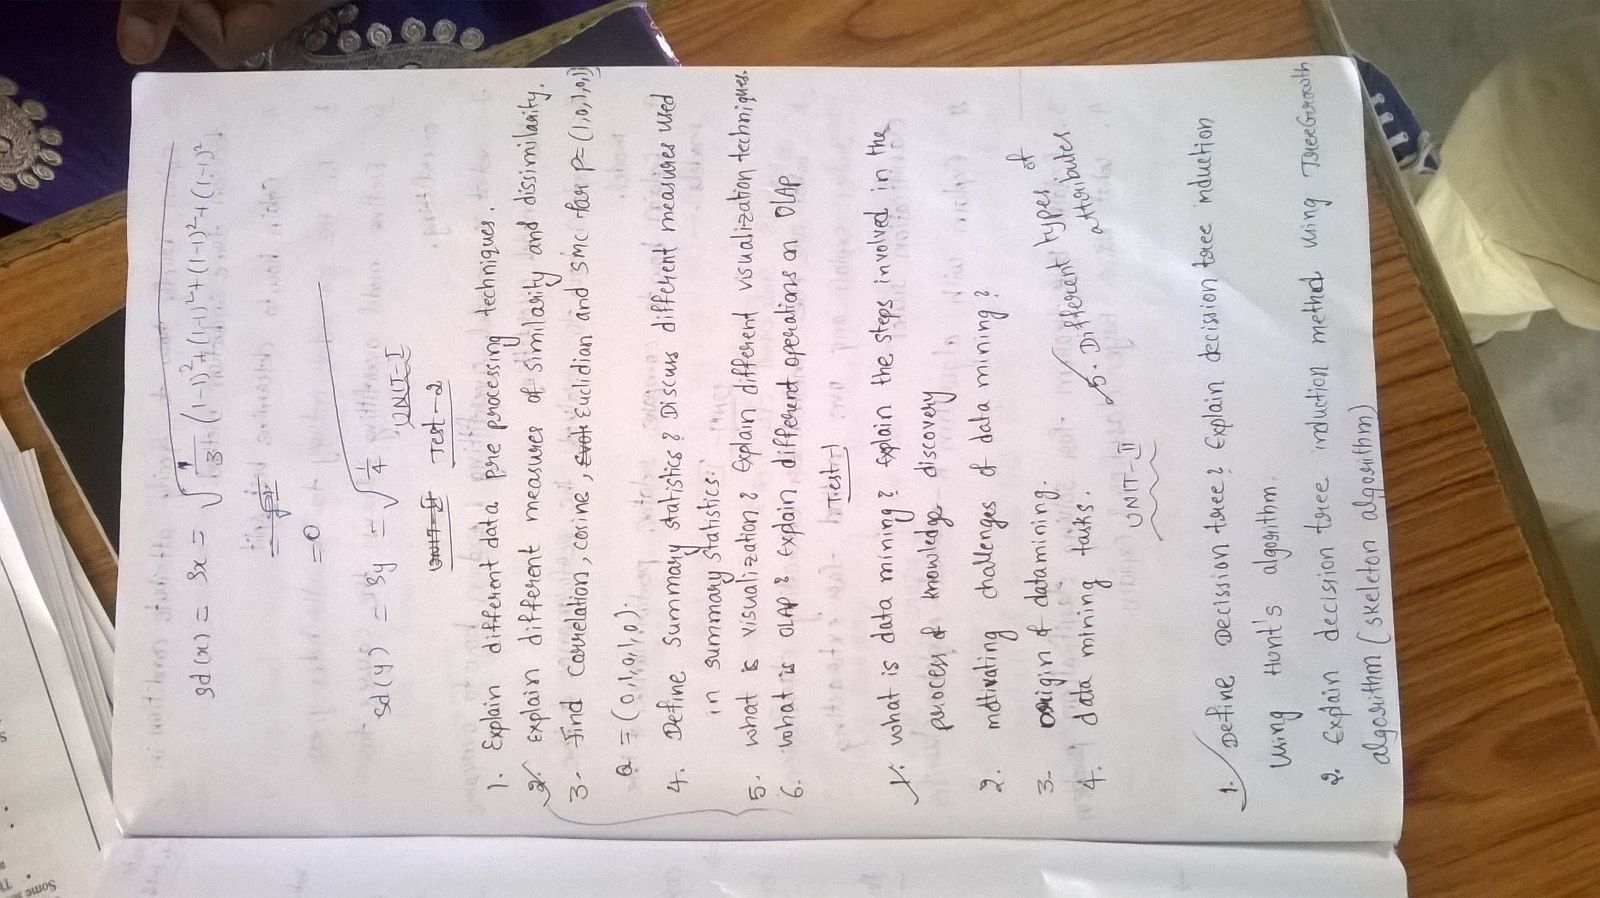 Some
sd(x) = Sx = √ 1/3 (1-1)²+(1-1)²+(1-1)²+(1-1)²
=0
sd(y) = Sy = √ 1/4
UNIT-I
UNIT-II Test-2
1. Explain different data pre processing techniques.
2. explain different measures of similarity and dissimilarity.
3- Find correlation, cosine, Euclidian and SMC for P=(1,0,1,0,1)
Q = (0,1,0,1,0).
4. Define summary statistics? Discuss different measures used
in summary statistics.
5. what is visualization? Explain different visualization techniques.
6. what is OLAP? Explain different operations on OLAP
Test-1
1. what is data mining? Explain the steps involved in the
process of knowledge discovery
2. motivating challenges of data mining?
3- origin of datamining.
4. data mining tasks.
5. Different types of
attributes.
UNIT-II
1. Define Decission tree? Explain decission tree induction
using Hunt's algorithm.
2. Explain decision tree induction method using TreeGrowth
algorithm (skeleton algorithm)